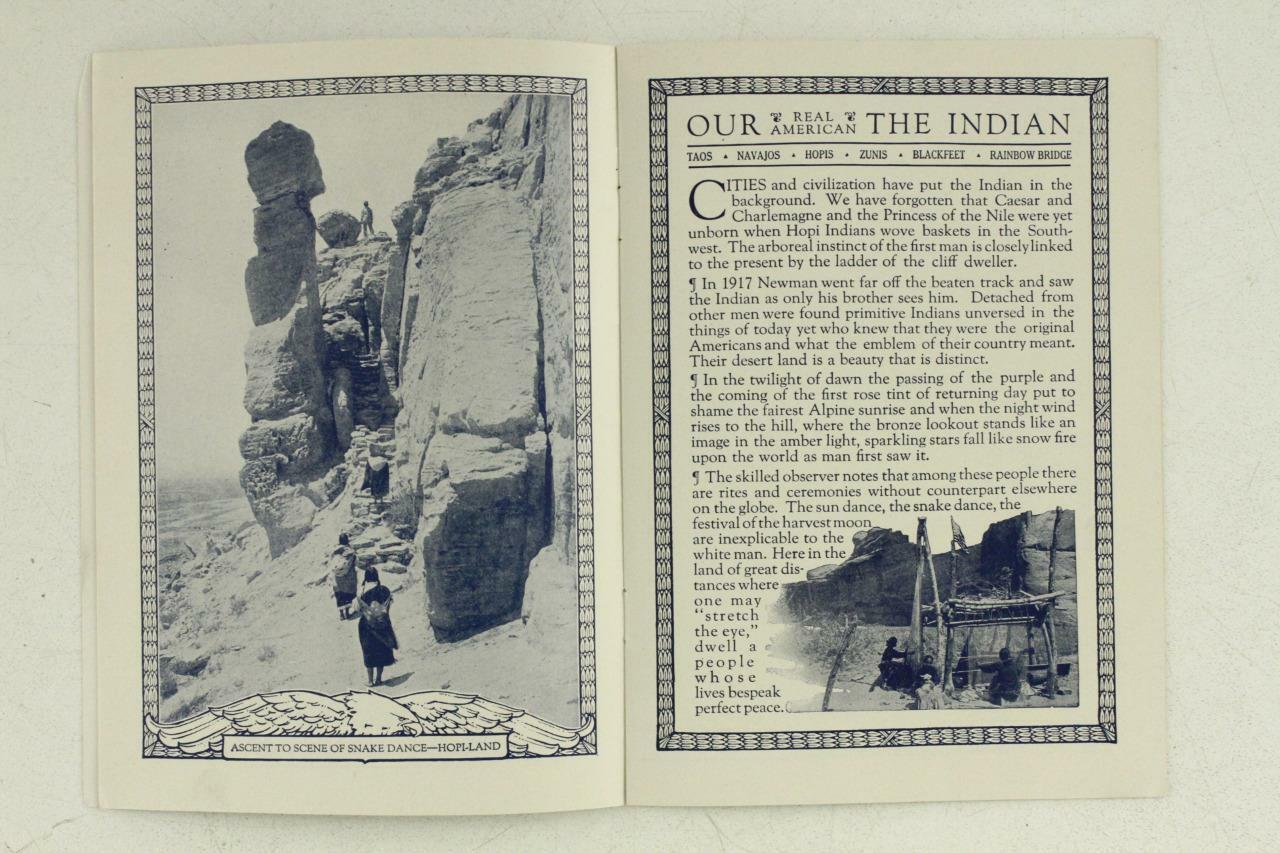 ASCENT TO SCENE OF SNAKE DANCE—HOPI-LAND
OUR REAL AMERICAN THE INDIAN
TAOS • NAVAJOS • HOPIS • ZUNIS • BLACKFEET • RAINBOW BRIDGE
CITIES and civilization have put the Indian in the
background. We have forgotten that Caesar and
Charlemagne and the Princess of the Nile were yet
unborn when Hopi Indians wove baskets in the South-
west. The arboreal instinct of the first man is closely linked
to the present by the ladder of the cliff dweller.
¶ In 1917 Newman went far off the beaten track and saw
the Indian as only his brother sees him. Detached from
other men were found primitive Indians unversed in the
things of today yet who knew that they were the original
Americans and what the emblem of their country meant.
Their desert land is a beauty that is distinct.
¶ In the twilight of dawn the passing of the purple and
the coming of the first rose tint of returning day put to
shame the fairest Alpine sunrise and when the night wind
rises to the hill, where the bronze lookout stands like an
image in the amber light, sparkling stars fall like snow fire
upon the world as man first saw it.
¶ The skilled observer notes that among these people there
are rites and ceremonies without counterpart elsewhere
on the globe. The sun dance, the snake dance, the
festival of the harvest moon
are inexplicable to the
white man. Here in the
land of great dis-
tances where
one may
"stretch
the eye,"
dwell a
people
whose
lives bespeak
perfect peace.